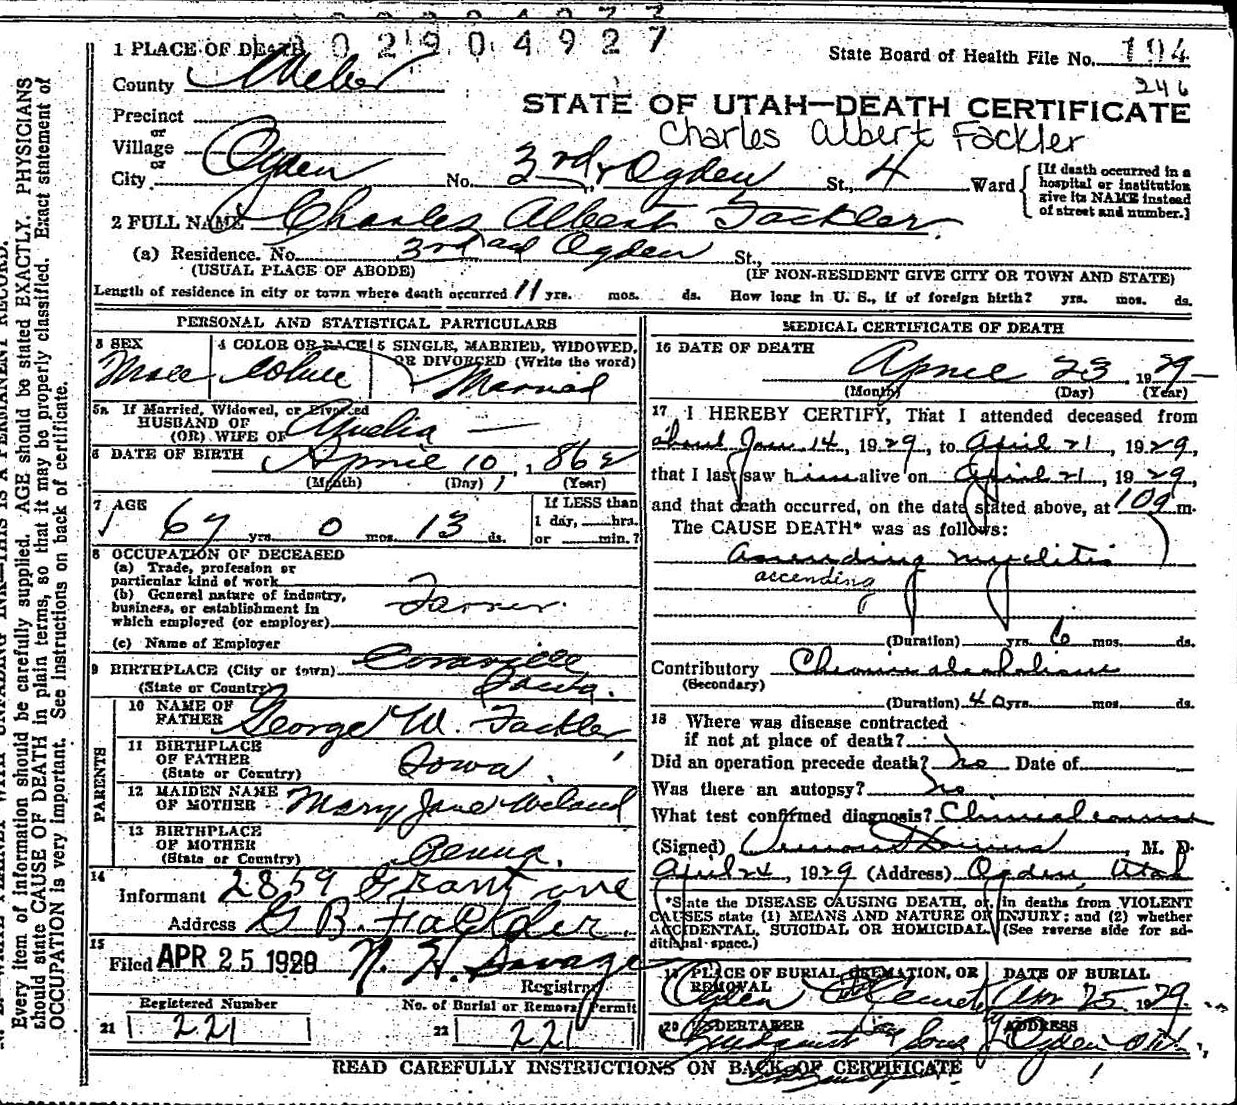 1 PLACE OF DEATH 0 2 9 0 4 9 2 7
State Board of Health File No. 194
County Weber
246
STATE OF UTAH—DEATH CERTIFICATE
Precinct
Charles Albert Fackler
or
Village
or
City Ogden No. 3rd & Ogden St., 4 Ward
[If death occurred in a
hospital or institution
give its NAME instead
of street and number.]
2 FULL NAME Charles Albert Fackler.
(a) Residence. No. 3rd and Ogden St.,
(USUAL PLACE OF ABODE) (IF NON-RESIDENT GIVE CITY OR TOWN AND STATE)
Length of residence in city or town where death occurred 11 yrs. mos. ds. How long in U. S., if of foreign birth? yrs. mos. ds.
PERSONAL AND STATISTICAL PARTICULARS
3 SEX
Male
4 COLOR OR RACE
White
5 SINGLE, MARRIED, WIDOWED,
OR DIVORCED (Write the word)
Married
5a If Married, Widowed, or Divorced
HUSBAND OF
(OR) WIFE OF Amelia —
6 DATE OF BIRTH April 10, 1862
(Month) (Day) (Year)
7 AGE
67 yrs. 0 mos. 13 ds.
If LESS than
1 day, hrs.
or min.?
8 OCCUPATION OF DECEASED
(a) Trade, profession or
particular kind of work
(b) General nature of industry,
business, or establishment in
which employed (or employer)
Farmer.
(c) Name of Employer
9 BIRTHPLACE (City or town) Coraville
(State or Country)
PARENTS
10 NAME OF
FATHER George W. Fackler
11 BIRTHPLACE
OF FATHER
(State or Country) Iowa.
12 MAIDEN NAME
OF MOTHER Mary Jane
13 BIRTHPLACE
OF MOTHER
(State or Country) Penna.
14
Informant 2859 Grant ave
Address G B. Fackler.
15
Filed APR 25 1929 N. H. Savage
Registrar
Registered Number No. of Burial or Removal Permit
21 221 22 221
MEDICAL CERTIFICATE OF DEATH
16 DATE OF DEATH
April 23 1929
(Month) (Day) (Year)
17 I HEREBY CERTIFY, That I attended deceased from
about Jan 14, 1929, to April 21, 1929,
that I last saw him alive on April 21, 1929,
and that death occurred, on the date stated above, at m.
The CAUSE DEATH* was as follows:
Ascending myelitis
ascending
(Duration) yrs. 6 mos. ds.
Contributory Chronic alcoholism
(Secondary)
(Duration) 40 yrs. mos. ds.
18 Where was disease contracted
if not at place of death?
Did an operation precede death? no Date of
Was there an autopsy? no
What test confirmed diagnosis? Clinical
(Signed) , M. D.
April 24, 1929 (Address) Ogden, Utah
*State the DISEASE CAUSING DEATH, or, in deaths from VIOLENT
CAUSES state (1) MEANS AND NATURE OF INJURY; and (2) whether
ACCIDENTAL, SUICIDAL OR HOMICIDAL. (See reverse side for ad-
ditional space.)
19 PLACE OF BURIAL, CREMATION, OR
REMOVAL
Ogden City
DATE OF BURIAL
Apr 25 1929
20 UNDERTAKER
Lindquist & Sons
ADDRESS
Ogden
READ CAREFULLY INSTRUCTIONS ON BACK OF CERTIFICATE
Every item of information should be carefully supplied. AGE should be stated EXACTLY. PHYSICIANS
should state CAUSE OF DEATH in plain terms, so that it may be properly classified. Exact statement of
OCCUPATION is very important. See instructions on back of certificate.